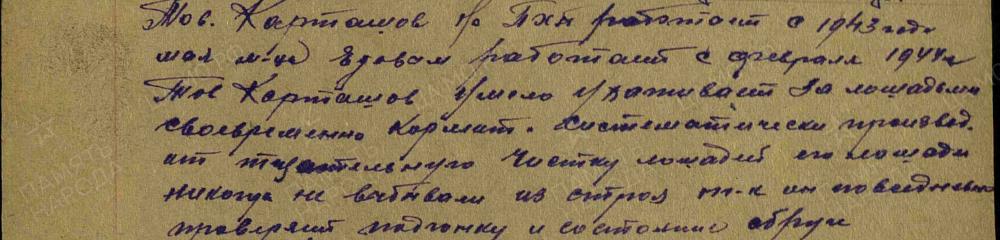 Тов. Карташов на ПХН работает с 1943 года
мая м-ца Ездовым работает с февраля 1944 г
Тов Карташов умело ухаживает за лошадьми
своевременно кормит. систематически производ.
ит тщательную чистку лошадей его лошади
никогда не выбывали из строя т-к он повседневно
проверяет подгонку и состояние сбруи